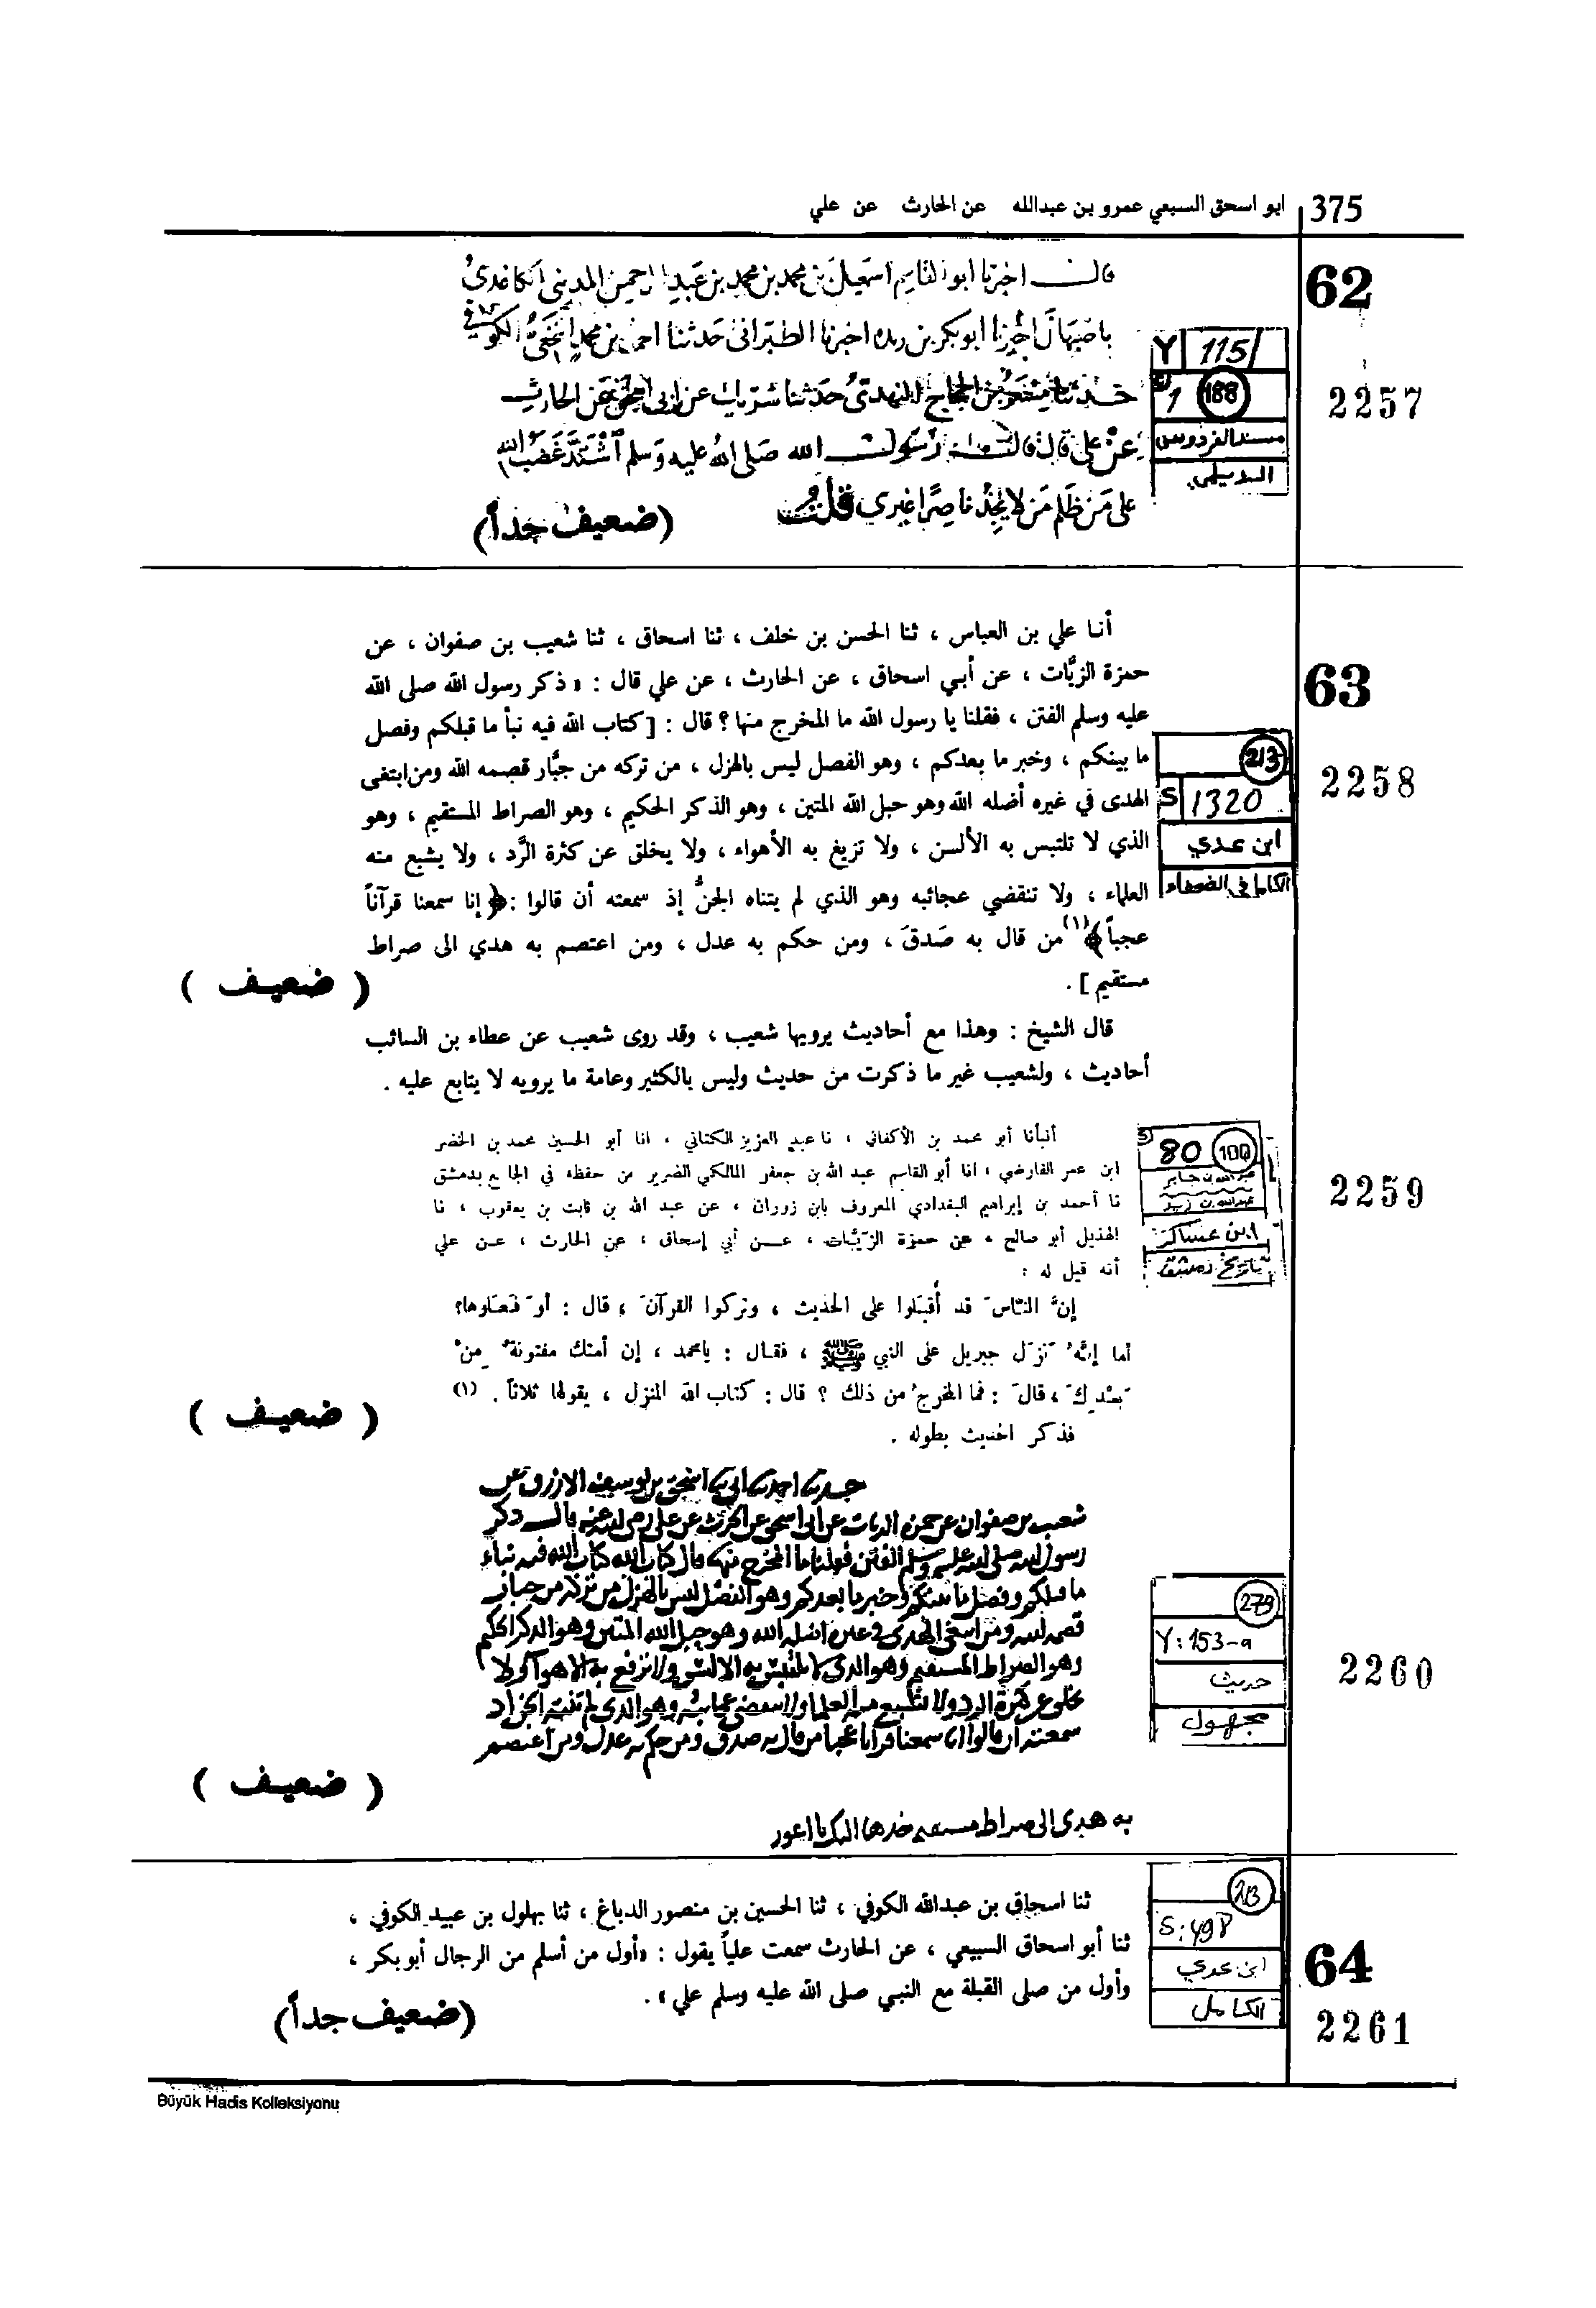 375 ابو اسحق السبعي عمرو بن عبدالله عن الحارث عن علي
62
قال اخبرنا ابو القاسم اسمعيل بن محمد بن محمد بن عبد الرحمن المديني الكاغدي
باصبهان اخبرنا ابو بكر بن ريده اخبرنا الطبراني حدثنا احمد بن محمد النخعي الكوفي
حدثنا مسعر بن الحجاج النهدي حدثنا شريك عن ابي اسحق عن الحارث
عن علي قال قال رسول الله صلى الله عليه وسلم اشتد غضب الله
على من ظلم من لا يجد ناصرا غيري قلت
(ضعيف جداً)
Y 115/
1 188
مسند الفردوس
الديلمي
2257
63
أنا علي بن العباس ، ثنا الحسن بن خلف ، ثنا اسحاق ، ثنا شعيب بن صفوان ، عن
حمزة الزيَّات ، عن أبي اسحاق ، عن الحارث ، عن علي قال : « ذكر رسول الله صلى الله
عليه وسلم الفتن ، فقلنا يا رسول الله ما المخرج منها ؟ قال : [ كتاب الله فيه نبأ ما قبلكم وفصل
ما بينكم ، وخبر ما بعدكم ، وهو الفصل ليس بالهزل ، من تركه من جبَّار قصمه الله ومن ابتغى
الهدى في غيره أضله الله وهو حبل الله المتين ، وهو الذكر الحكيم ، وهو الصراط المستقيم ، وهو
الذي لا تلتبس به الألسن ، ولا تزيغ به الأهواء ، ولا يخلق عن كثرة الرَّد ، ولا يشبع منه
العلماء ، ولا تنقضي عجائبه وهو الذي لم يتناه الجنُّ إذ سمعته أن قالوا : ﴿ إنا سمعنا قرآناً
عجباً ﴾(١) من قال به صَدقَ ، ومن حكم به عدل ، ومن اعتصم به هدي الى صراط
مستقيم ] .
( ضعيف )
213
S 1320
ابن عدي
الكامل في الضعفاء
2258
قال الشيخ : وهذا مع أحاديث يرويها شعيب ، وقد روى شعيب عن عطاء بن السائب
أحاديث ، ولشعيب غير ما ذكرت من حديث وليس بالكثير وعامة ما يرويه لا يتابع عليه .
أنبأنا أبو محمد بن الأكفاني ، نا عبد العزيز الكتاني ، انا أبو الحسين محمد بن الخضر
ابن عمر الفارضي ، انا أبو القاسم عبد الله بن جعفر المالكي الضرير من حفظه في الجامع بدمشق
نا أحمد بن إبراهيم البغدادي المعروف بابن زوران ، عن عبد الله بن ثابت بن يعقوب ، نا
الهذيل أبو صالح ، عن حمزة الزيّات ، عن أبي إسحاق ، عن الحارث ، عن علي
أنه قيل له :
إنَّ النّاسَ قد أقبَلوا على الحديث ، وتركوا القرآنَ ، قال : أوَ فَعَلوها؟
أما إنَّهُ نَزَلَ جبريل على النبي ﷺ ، فقال : يامحمد ، إن أمتك مفتونةٌ مِنْ
بَعْدِكَ ، قالَ : فما المخرجُ من ذلك ؟ قال : كتاب الله المنزل ، يقولها ثلاثاً . (١)
فذكر الحديث بطوله .
( ضعيف )
80 100
عبدالله بن جابر
عبدالله بن زيد
ابن عساكر
تاريخ دمشق
2259
حدثنا احمد ثنا ابي ثنا اسحق بن يوسف الازرق عن
شعيب بن صفوان عن حمزه الزيات عن ابي اسحق عن الحرث عن علي رضي الله عنه قال ذكر
رسول الله صلى الله عليه وسلم الفتن فقلنا ما المخرج منها قال كتاب الله كتاب الله فيه نباء
ما قبلكم وفصل ما بينكم وخبر ما بعدكم وهو الفصل ليس بالهزل من تركه من جبار
قصمه الله ومن ابتغى الهدى في غيره اضله الله وهو حبل الله المتين وهو الذكر الحكيم
وهو الصراط المستقيم وهو الذي لا تلتبس به الالسن ولا تزيغ به الاهواء ولا
يخلق عن كثرة الرد ولا تشبع منه العلماء ولا تنقضي عجائبه وهو الذي لم تنته الجن اذ
سمعته ان قالوا انا سمعنا قرانا عجبا من قال به صدق ومن حكم به عدل ومن اعتصم
به هدى الى صراط مستقيم خذها اليك يا اعور
( ضعيف )
279
Y: 153-a
حديث
مجهول
2260
ثنا اسحاق بن عبدالله الكوفي ، ثنا الحسين بن منصور الدباغ ، ثنا بهلول بن عبيد الكوفي ،
ثنا أبو اسحاق السبيعي ، عن الحارث سمعت علياً يقول : «أول من أسلم من الرجال أبو بكر ،
وأول من صلى القبلة مع النبي صلى الله عليه وسلم علي » .
(ضعيف جداً)
213
S: 498
ابن عدي
الكامل
64
2261
Büyük Hadis Kolleksiyonu